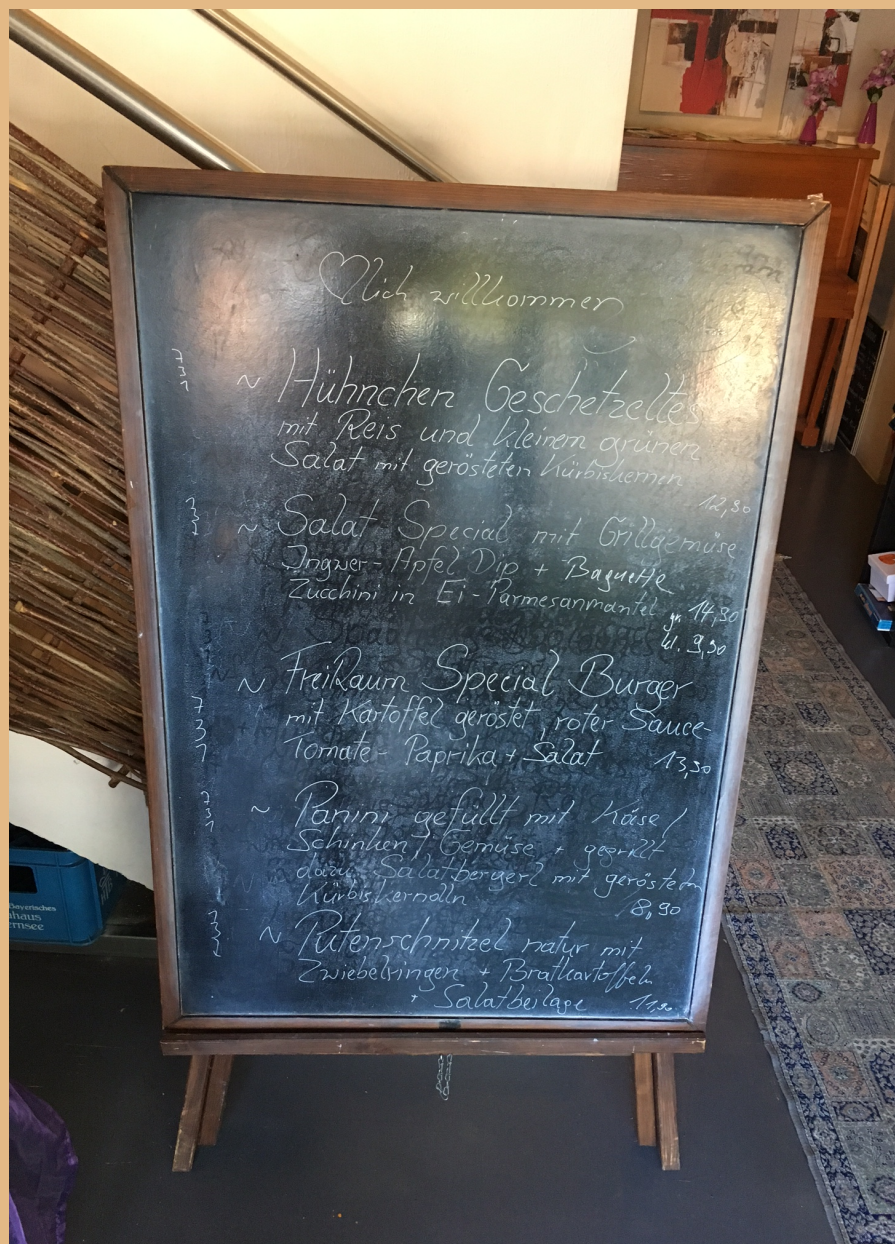 ♡lich willkommen
~ Hühnchen Geschetzeltes
mit Reis und kleinem grünen
Salat mit gerösteten Kürbiskernen
12,90
~ Salat Special mit Grillgemüse
Ingwer-Apfel Dip + Baguette
Zucchini in Ei-Parmesanmantel gr. 14,90
kl. 9,90
~ FreiRaum Special Burger
mit Kartoffel geröstet, roter Sauce-
Tomate-Paprika + Salat 13,90
~ Panini gefüllt mit Käse /
Schinken / Gemüse + gegrillt
dazu Salatbergerl mit gerösteten
Kürbiskernöln 8,90
~ Putenschnitzel natur mit
Zwiebelringen + Bratkartoffeln
+ Salatbeilage 11,90